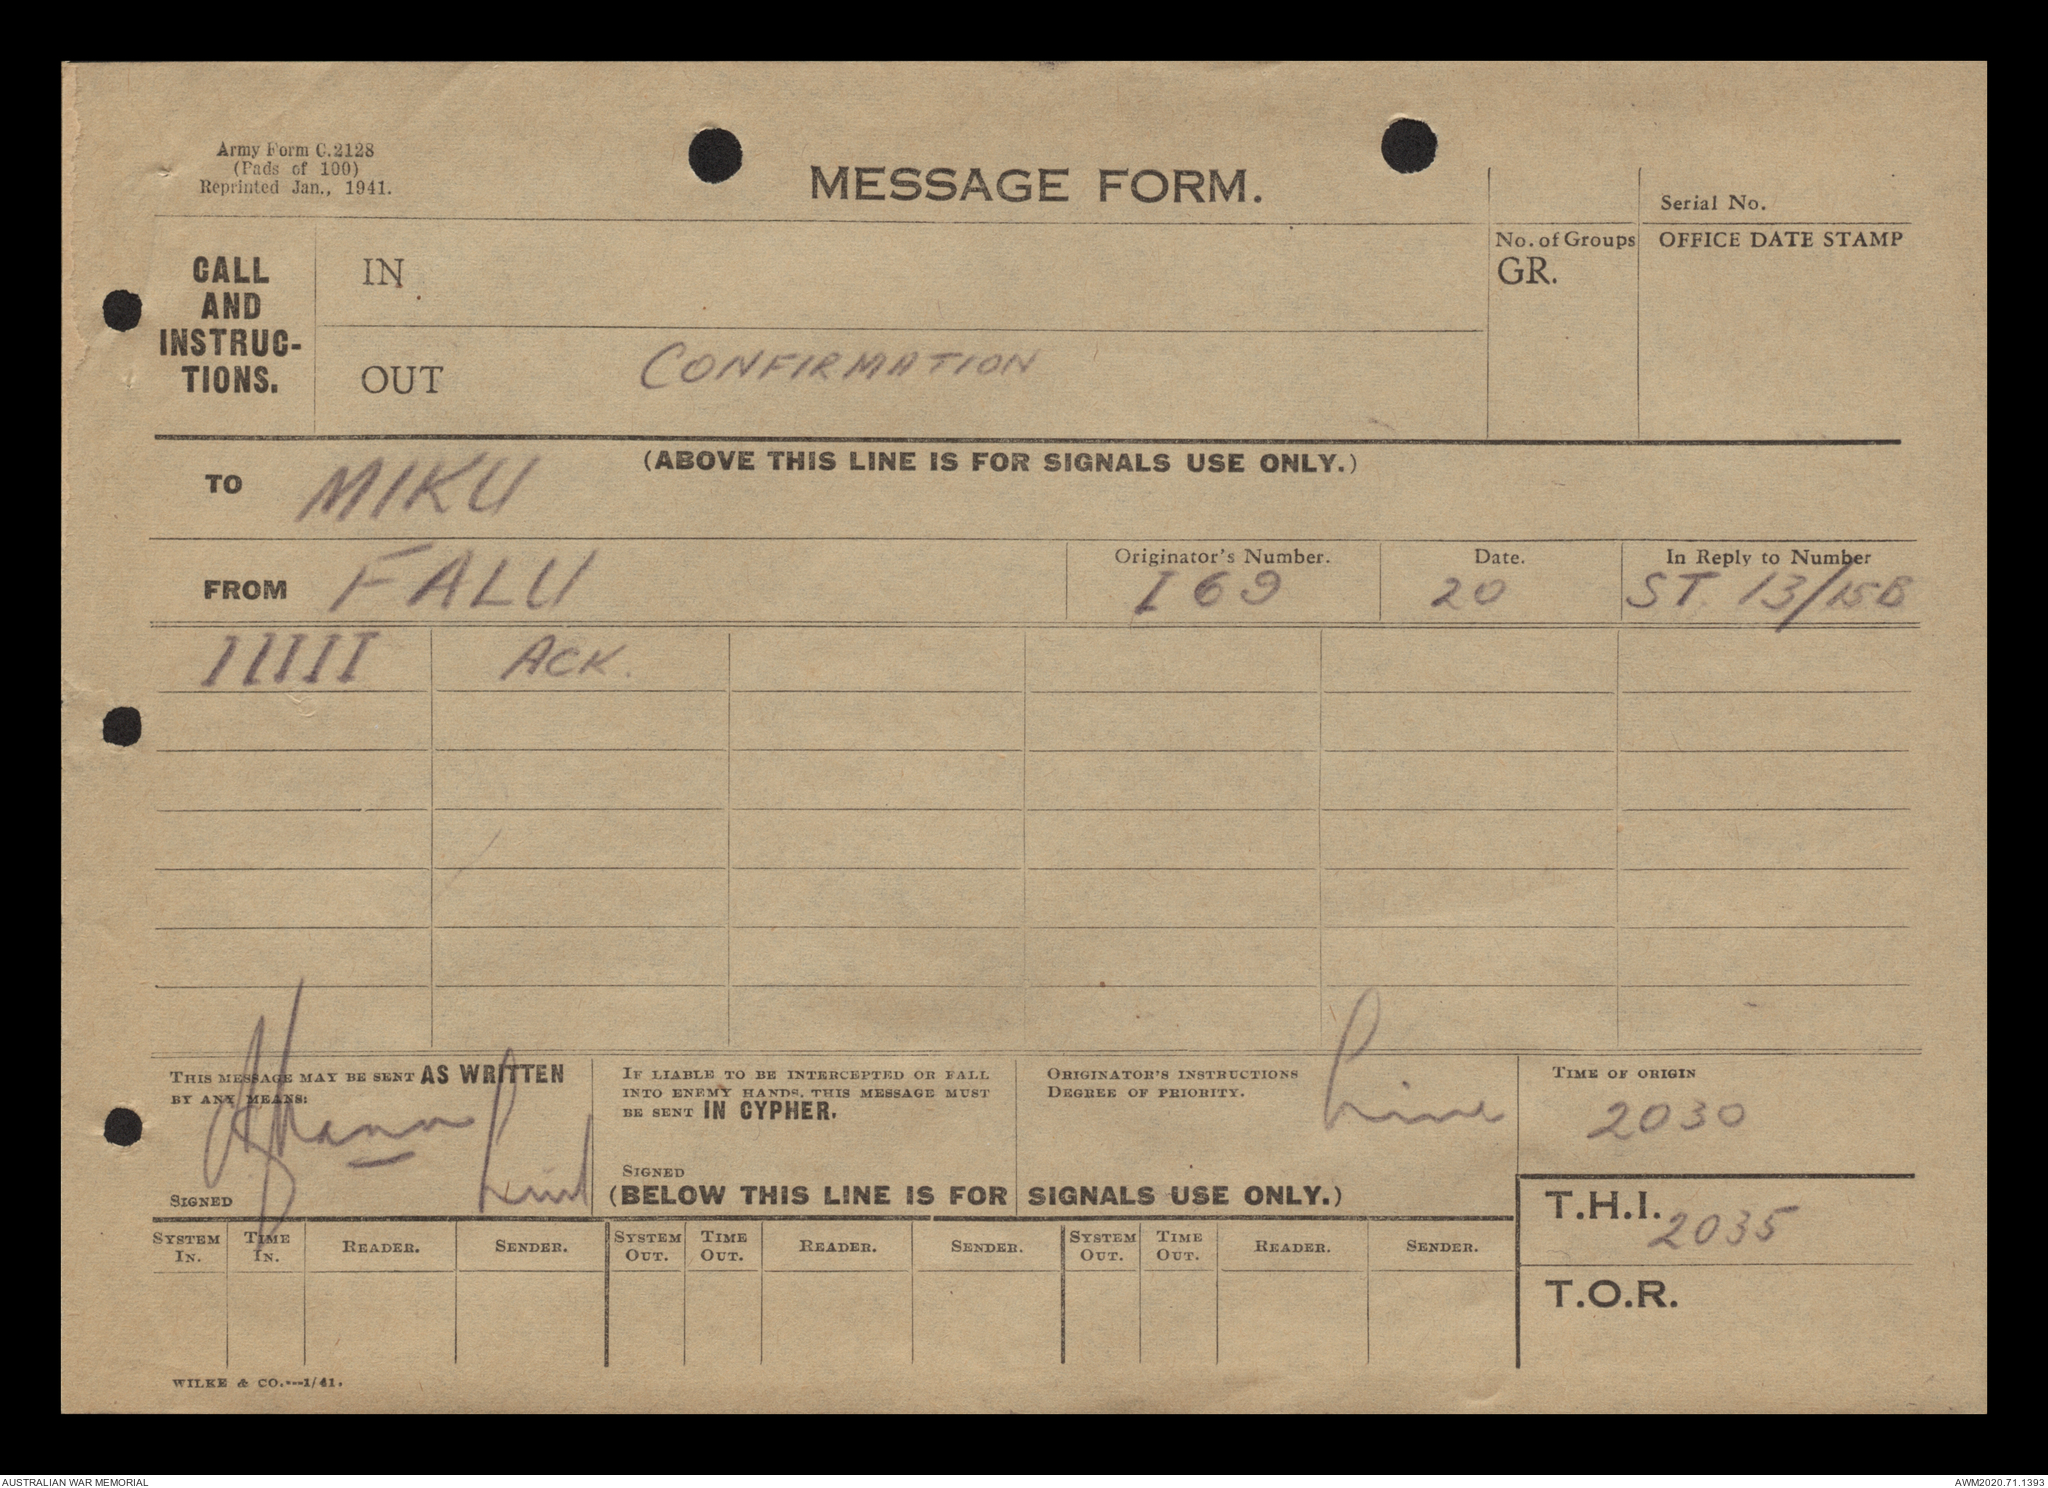 Army Form C.2128
(Pads of 100)
Reprinted Jan., 1941.
MESSAGE FORM.
Serial No.
CALL
AND
INSTRUC-
TIONS.
IN
No. of Groups
GR.
OFFICE DATE STAMP
OUT
CONFIRMATION
(ABOVE THIS LINE IS FOR SIGNALS USE ONLY.)
TO
MIKU
FROM
FALU
Originator's Number.
I 69
Date.
20
In Reply to Number
ST. 13/15B
IIIII
ACK.
THIS MESSAGE MAY BE SENT AS WRITTEN
BY ANY MEANS:
SIGNED
IF LIABLE TO BE INTERCEPTED OR FALL
INTO ENEMY HANDS, THIS MESSAGE MUST
BE SENT IN CYPHER.
SIGNED
ORIGINATOR'S INSTRUCTIONS
DEGREE OF PRIORITY.
TIME OF ORIGIN
2030
(BELOW THIS LINE IS FOR SIGNALS USE ONLY.)
T.H.I. 2035
SYSTEM IN.
TIME IN.
READER.
SENDER.
SYSTEM OUT.
TIME OUT.
READER.
SENDER.
SYSTEM OUT.
TIME OUT.
READER.
SENDER.
T.O.R.
WILKE & CO.---1/41.
AUSTRALIAN WAR MEMORIAL
AWM2020.71.1393